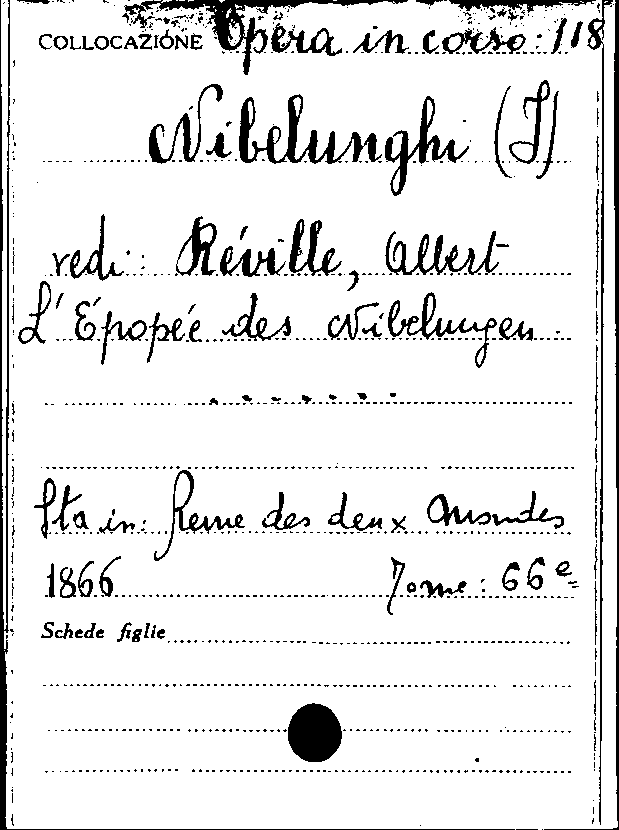 COLLOCAZIONE Opera in corso: 118
Nibelunghi (I)
vedi: Réville, Albert
L'Épopée des Nibelungen.
. . . . . . .
Sta in: Revue des deux Mondes
1866 Tome: 66e
Schede figlie